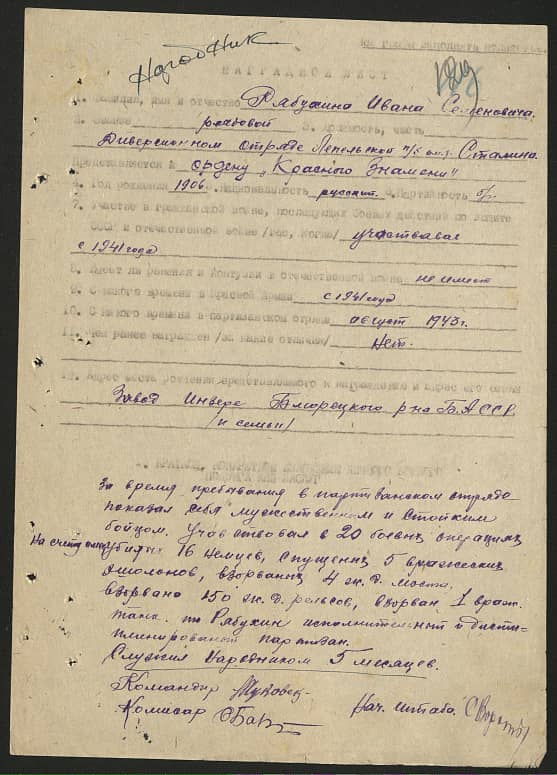 Народник
НАГРАДНОЙ ЛИСТ
1. Фамилия, имя и отчество Рябухина Ивана Семеновича.
2. Звание рядовой 3. Должность, часть
Диверсионном отряде Лепельской п/б им. Сталина
Представляется к ордену "Красного Знамени"
4. Год рождения 1906. Национальность русский. 6. Партийность б/п.
7. Участие в гражданской войне, последующих боевых действиях по защите
СССР и отечественной войне /где, когда/ участвовал
с 1941 года
8. Имеет ли ранения и контузии в отечественной войне не имеет
9. С какого времени в Красной Армии с 1941 года
10. С какого времени в партизанском отряде август 1943 г.
11. Чем ранее награжден /за какие отличия/ Нет.
12. Адрес места рождения представляемого к награждению и адрес его семьи
Завод Инзере Белорецкого р-на Б.АССР
/и семьи/
За время пребывания в партизанском отряде
показал себя мужественным и стойким
бойцом. Участвовал в 20 боевых операциях
На счету его убитых 16 немцев, спущенных 5 вражеских
эшолонов, взорванных 4 ж.д. моста.
взорвано 150 ж.д. рельсов, взорван 1 враж.
танк. тов Рябухин исполнительный и дисци-
плинированный партизан.
Служил Народником 5 месяцев.
Командир
Комисар
Нач. штаба